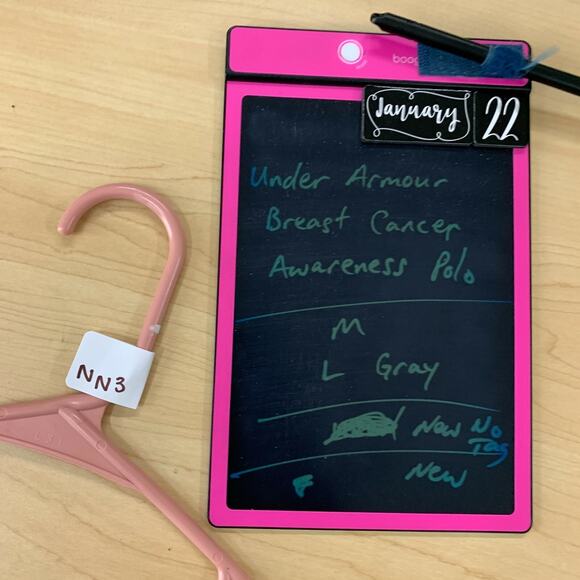 boog
January 22
Under Armour
Breast Cancer
Awareness Polo
M
L Gray
New No
Tag
New
F
NN3